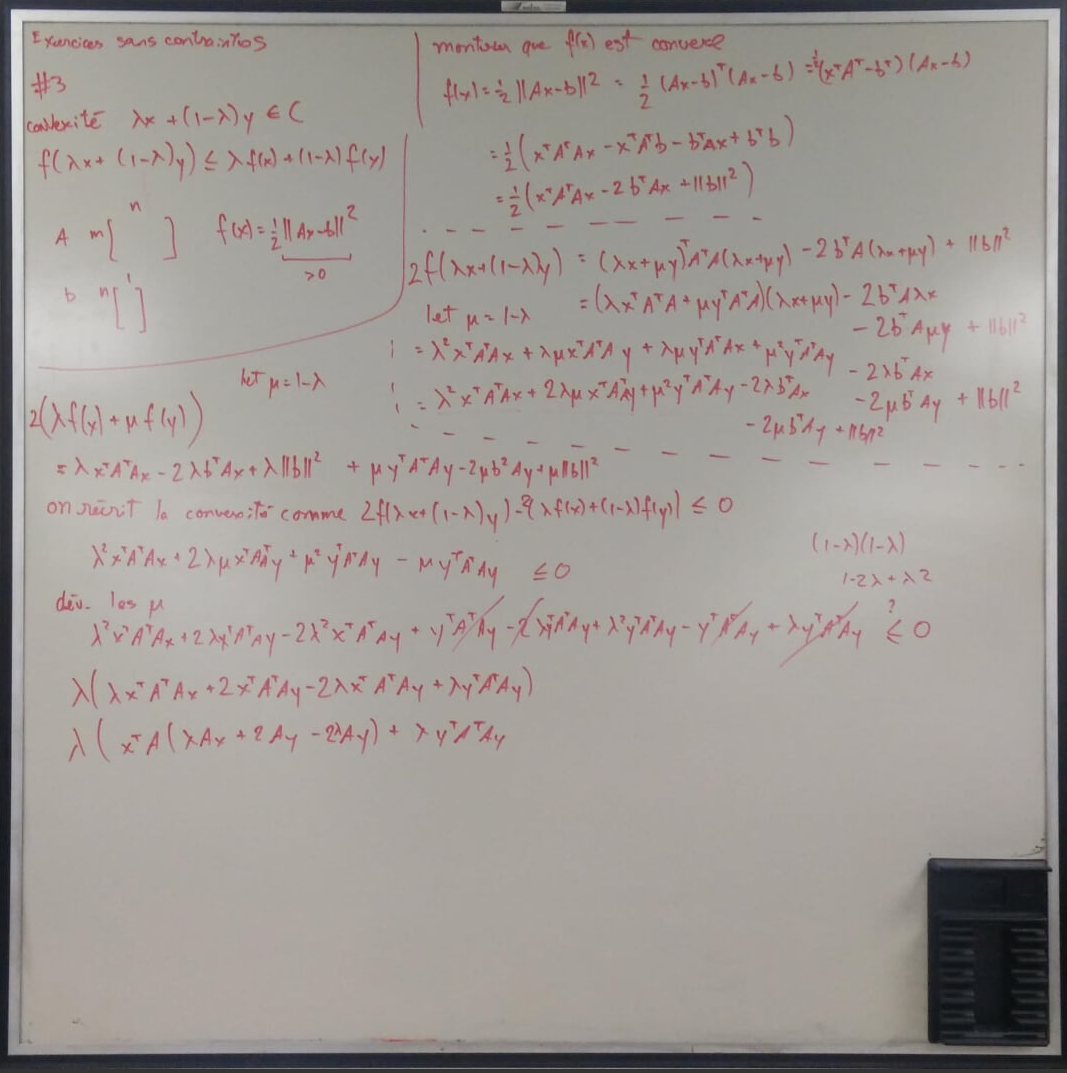 Exercices sans contraintes
#3
convexité λx + (1-λ)y ∈ C
f(λx + (1-λ)y) ≤ λf(x) + (1-λ)f(y)
A m[ n ] f(x) = ½||Ax-b||²
>0
b n[ 1 ]
montrer que f(x) est convexe
f(x) = ½||Ax-b||2 = ½ (Ax-b)ᵀ(Ax-b) = ½(xᵀAᵀ-bᵀ)(Ax-b)
= ½(xᵀAᵀAx - xᵀAᵀb - bᵀAx + bᵀb)
= ½(xᵀAᵀAx - 2bᵀAx + ||b||²)
2f(λx+(1-λ)y) = (λx+μy)ᵀAᵀA(λx+μy) - 2bᵀA(λx+μy) + ||b||²
let μ = 1-λ = (λxᵀAᵀA + μyᵀAᵀA)(λx+μy) - 2bᵀAλx
- 2bᵀAμy + ||b||²
= λ²xᵀAᵀAx + λμxᵀAᵀAy + λμyᵀAᵀAx + μ²yᵀAᵀAy - 2λbᵀAx
- 2μbᵀAy + ||b||²
= λ²xᵀAᵀAx + 2λμxᵀAᵀAy + μ²yᵀAᵀAy - 2λbᵀAx
- 2μbᵀAy + ||b||²
let μ = 1-λ
2(λf(x) + μf(y))
= λxᵀAᵀAx - 2λbᵀAx + λ||b||² + μyᵀAᵀAy - 2μb²Ay + μ||b||²
on réécrit la convexité comme 2f(λx+(1-λ)y) - 2(λf(x)+(1-λ)f(y)) ≤ 0
λ²xᵀAᵀAx + 2λμxᵀAᵀAy + μ²yᵀAᵀAy - μyᵀAᵀAy ≤ 0
(1-λ)(1-λ)
1-2λ+λ2
dév. les μ
λ²xᵀAᵀAx + 2λyᵀAᵀAy - 2λ²xᵀAᵀAy + yᵀAᵀAy - 2λyᵀAᵀAy + λ²yᵀAᵀAy - yᵀAᵀAy + λyᵀAᵀAy ≤? 0
λ(λxᵀAᵀAx + 2xᵀAᵀAy - 2λxᵀAᵀAy + λyᵀAᵀAy)
λ(xᵀA(λAx + 2Ay - 2λAy) + λyᵀAᵀAy